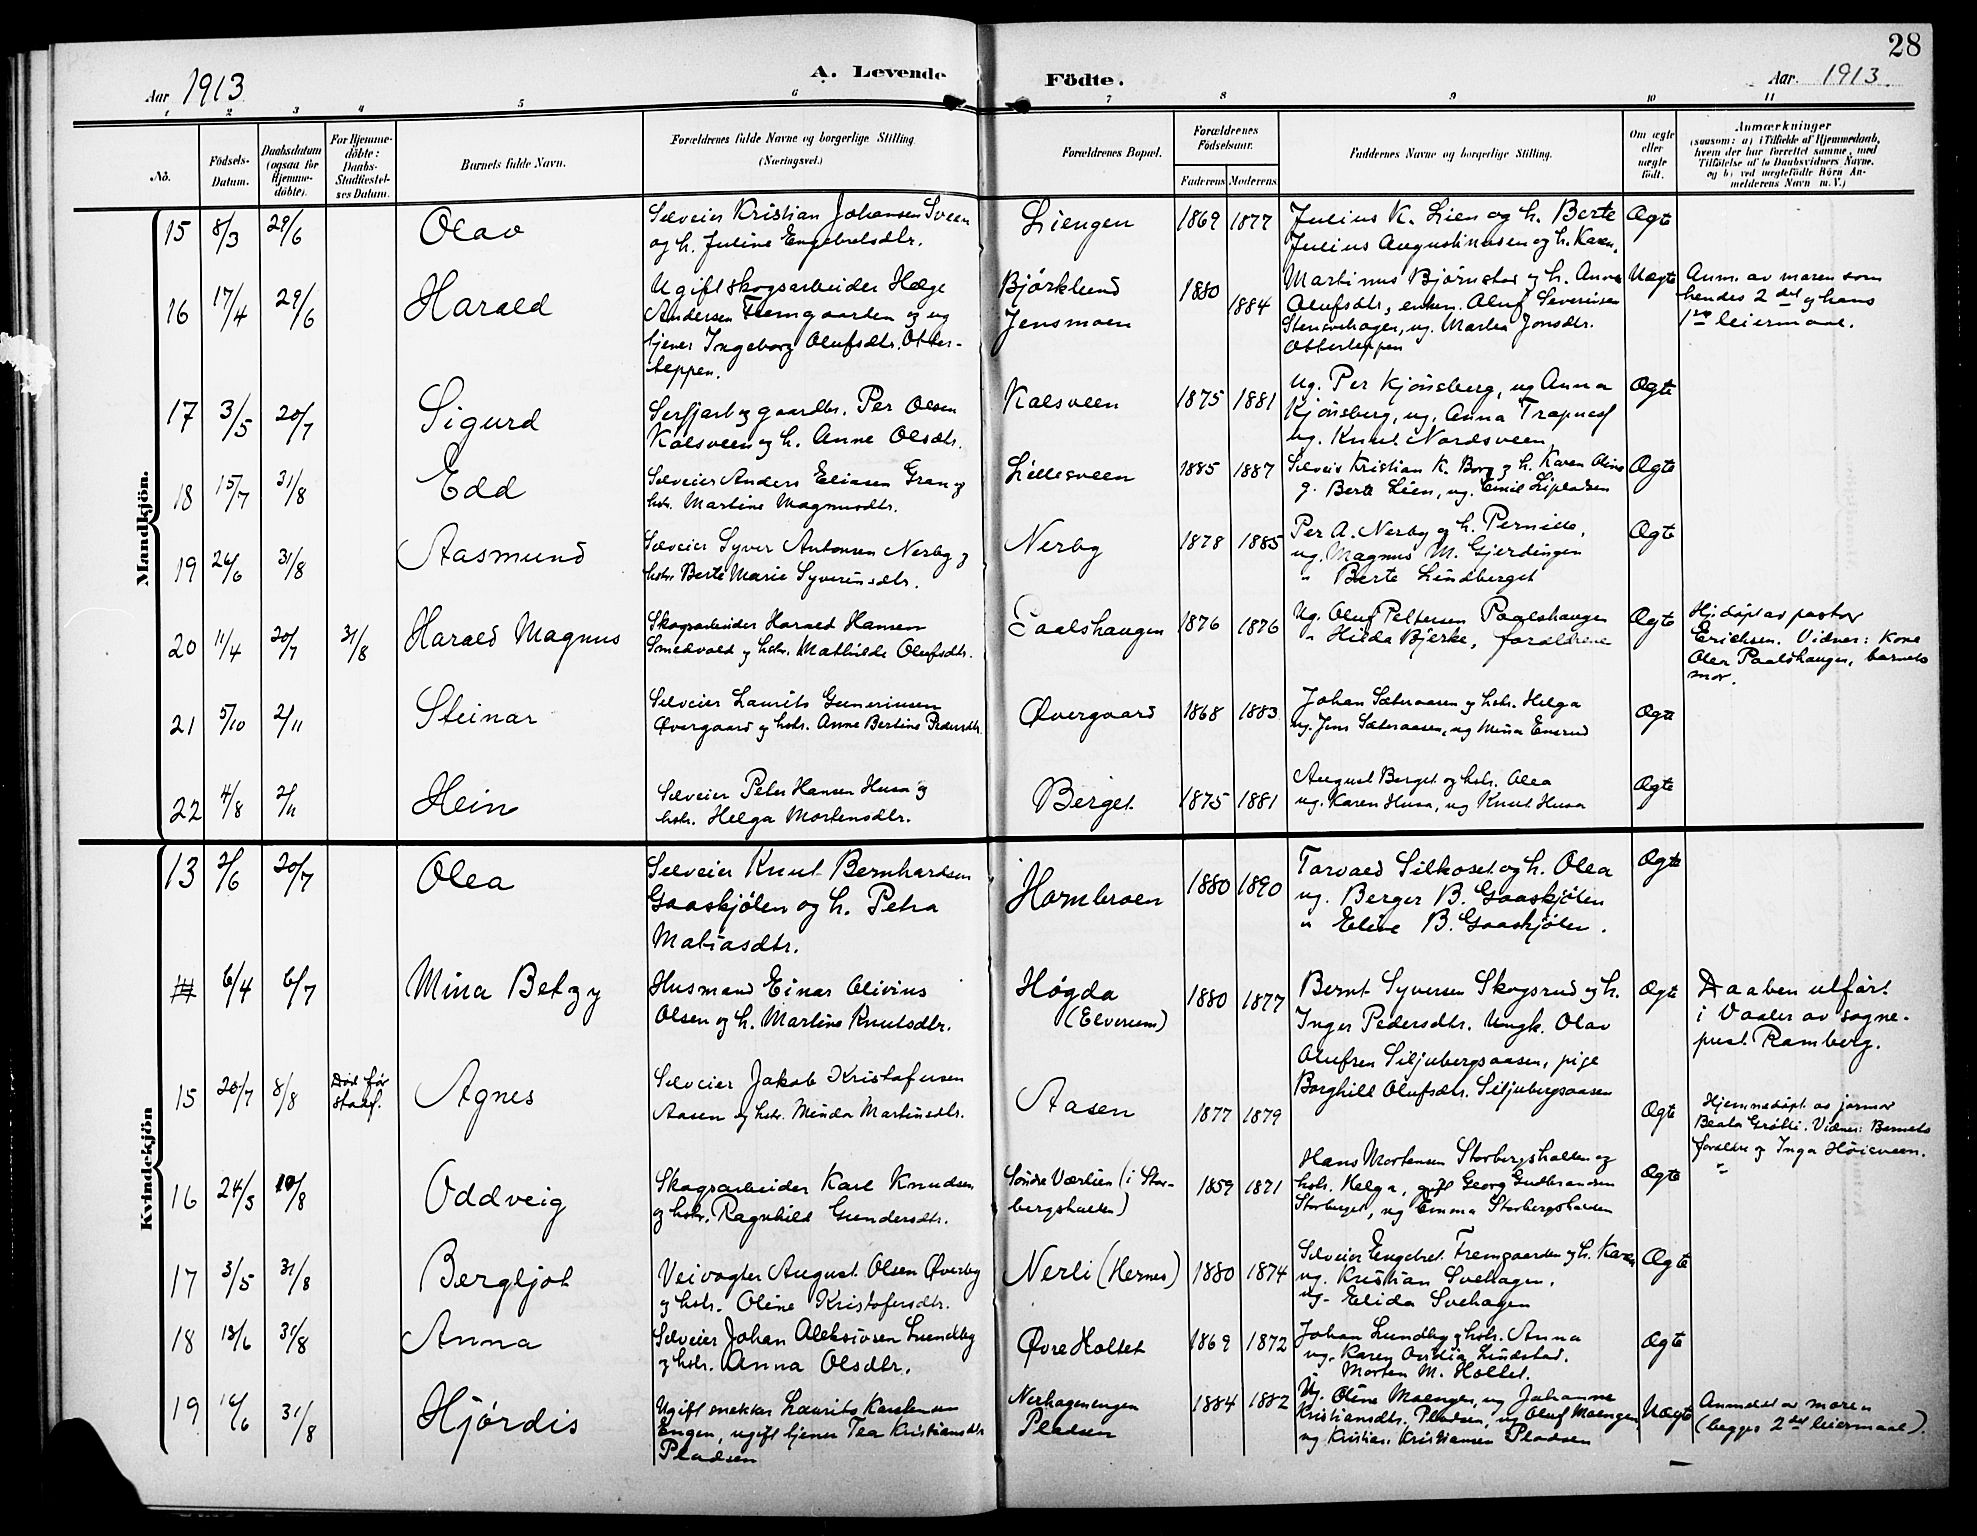 28
Aar 1913
A. Levende
Födte.
Aar. 1913
1 2 3 4 5 6 7 8 9 10 11
No.
Födsels-
Datum.
Daabsdatum
(ogsaa for
Hjemme-
döbte).
For Hjemme-
döbte:
Daabs-
Stadfæstel-
ses Datum.
Barnets fulde Navn.
Forældrenes fulde Navne og borgerlige Stilling
(Næringsvei.)
Forældrenes Bopæl.
Forældrenes
Födselsaar.
Faderens Moderens
Faddernes Navne og borgerlige Stilling.
Om ægte
eller
uægte
födt.
Anmærkninger
(saasom: a) i Tilfælde af Hjemmedaab,
hvem der har forrettet samme, med
Tilföielse af to Daabsvidners Navne,
og b) ved uægtefödte Börn An-
melderens Navn m. V.)
Mandkjön.
15 8/3 29/6 Olav
Selveier Kristian Johansen Sveen
og h. Juline Engebretsdtr.
Liengen 1869 1877
Julius K. Lien og h. Berte
Julius Augustinussen og h. Karen.
Ægte
16 17/4 29/6 Harald
Ugift skogsarbeider Helge
Andersen Fremgaarden og ug
tjener Ingeborg Olufsdtr. Otter-
teppen.
Bjørklund
Jensmoen
1880 1884
Martinus Bjørnstad og h. Anna
Olufsdtr, enkem. Oluf Severinsen
Stensvehagen, ug. Martea Jonsdtr.
Otterteppen
Uægte
Anm. av moren som
hendes 2det og hans
1ste leiermaal.
17 3/5 20/7 Sigurd
gaardbr. Per Olsen
Kalsveen og h. Anne Olsdtr.
Kalsveen 1875 1881
Ug. Per Kjønsberg, ug Anna
Kjønsberg, ug. Anna Trapnes
ug. Knut Nordsveen
Ægte
18 15/7 31/8 Edd
Selveier Anders Eliasen Gran og
hstr. Martine Magnusdtr.
Lillesveen 1885 1887
Selveier Kristian K. Borg og h. Karen Oline
g. Berte Lien, ug. Emil Liplassen
Ægte
19 26/6 31/8 Aasmund
Selveier Syver Antonsen Nerby og
hstr Berte Marie Syverinsdtr.
Nerby 1878 1885
Per A. Nerby og h. Pernille,
ug. Magnus M. Gjerdingen
" Berte Lindberget
Ægte
20 11/4 20/7 31/8 Harald Magnus
Skogsarbeider Harald Hansen
Smedvold og hstr. Mathilde Olufsdtr.
Paalshaugen 1876 1876
Ug. Oluf Pettersen Paalshaugen
" Hilda Bjerke, forældrene
Ægte
Hj.døpt av pastor
Erichsen. Vidner: Kone
Olea Paalshaugen, barnets
mor.
21 5/10 2/11 Steinar
Selveier Laurits Gunerinsen
Øvergaard og hstr. Anne Bertine Pedersdtr.
Øvergaard 1868 1883
Johan Sæteraasen og hstr. Helga
ug. Jens Sæteraasen, ug Mina Enerud
Ægte
22 4/8 2/11 Hein
Selveier Peter Hansen Husa og
hstr. Helga Mortensdtr.
Berget 1875 1881
August Berget og hstr. Olea
ug. Karen Husa, ug Knut Husa
Ægte
Kvindekjön
13 2/6 20/7 Olea
Selveier Knut Bernhardsen
Gaaskjølen og h. Petra
Matiasdtr.
Hornbroen 1880 1890
Torvald Silkoset og h. Olea
ug. Berger B. Gaaskjølen
" Eline B. Gaaskjølen.
Ægte
6/4 6/7 Mina Betzy
Husmand Einar Olivius
Olsen og h. Martine Knutsdtr.
Høgda
(Elverum)
1880 1877
Bernt Syversen Skogsrud og h.
Inger Pedersdtr. Ungk. Olav
Olufsen Siljubergsaasen, pige
Borghild Olufsdtr. Siljubergsaasen
Ægte
Daaben utført
i Vaaler av sogne-
prest Ramberg.
15 20/7 8/8 Død før
stadf.
Agnes
Selveier Jakob Kristofersen
Aasen og hstr. Minda Martinsdtr.
Aasen 1877 1879
Ægte
Hjemmedøpt av jormor
Beata Grøtli. Vidner: Barnets
forældre og Inga Høiesveen.
16 24/5 10/8 Oddveig
Skogsarbeider Karl Knudsen
og hstr. Ragnhild Gundersdtr.
Søndre Værlien (i Stor-
bergshallen)
1859 1871
Hans Mortensen Storbergshallen og
hstr. Helga, gift Georg Gudbrandsen
Storberget, ug Emma Storbergshallen
Ægte
17 3/5 31/8 Bergljot
Veivogter August Olsen Øverby
og hstr. Oline Kristofersdtr.
Nerli (Hernes) 1880 1874
Selveier Engebret Fremgaarden og h. Karen
ug. Kristian Svehagen.
ug. Elida Svehagen
Ægte
18 18/6 31/8 Anna
Selveier Johan Aleksiusen Lundby
og hstr. Anna Olsdtr.
Øvre Holtet 1869 1872
Johan Lundby og hstr. Anna
ug. Karen Lindstad.
Morten M. Holtet.
Ægte
19 16/6 31/8 Hjørdis
Ugift snekker Laurits Karstensen
Engen, ugift tjener Tea Kristiansdtr
Pladsen
Nerhagenengen
Pladsen
1884 1882
Ug. Oline Moengen, ug Johanne
Kristiansdtr. Pladsen, ug Oluf Moengen
ug Kristian Kristiansen Pladsen
Uægte
Anmeldt av moren
(begges 2det leiermaal).